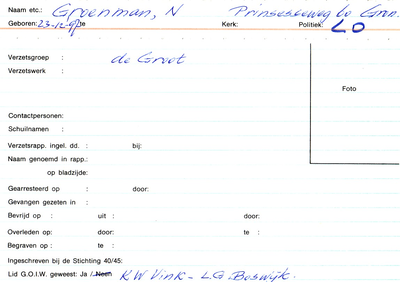 Naam etc.: Groenman, N Prinsesseweg 60 Gron.
Geboren: 23-12-97 te Kerk: Politiek: LO
Verzetsgroep : de Groot
Verzetswerk :
Foto
Contactpersonen:
Schuilnamen :
Verzetsrapp. ingel. dd. : bij:
Naam genoemd in rapp.:
op bladzijde:
Gearresteerd op : door:
Gevangen gezeten in :
Bevrijd op : uit : door:
Overleden op: door: te :
Begraven op : te :
Ingeschreven bij de Stichting 40/45:
Lid G.O.I.W. geweest: Ja / Neen K.W Vink - L.G. Boswijk.